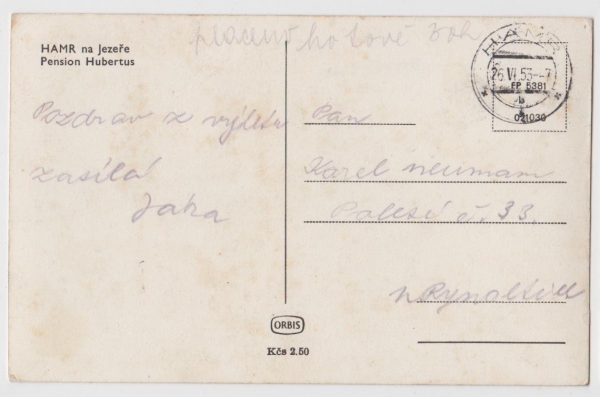 HAMR na Jezeře
Pension Hubertus
placeno hotově 30h
HAMR
26.VI.53--7
b
EP 5381
021030
Pozdrav z výletu
zasílá
Jaka
Pan
Karel neuman
č. 33.
ORBIS
Kčs 2.50